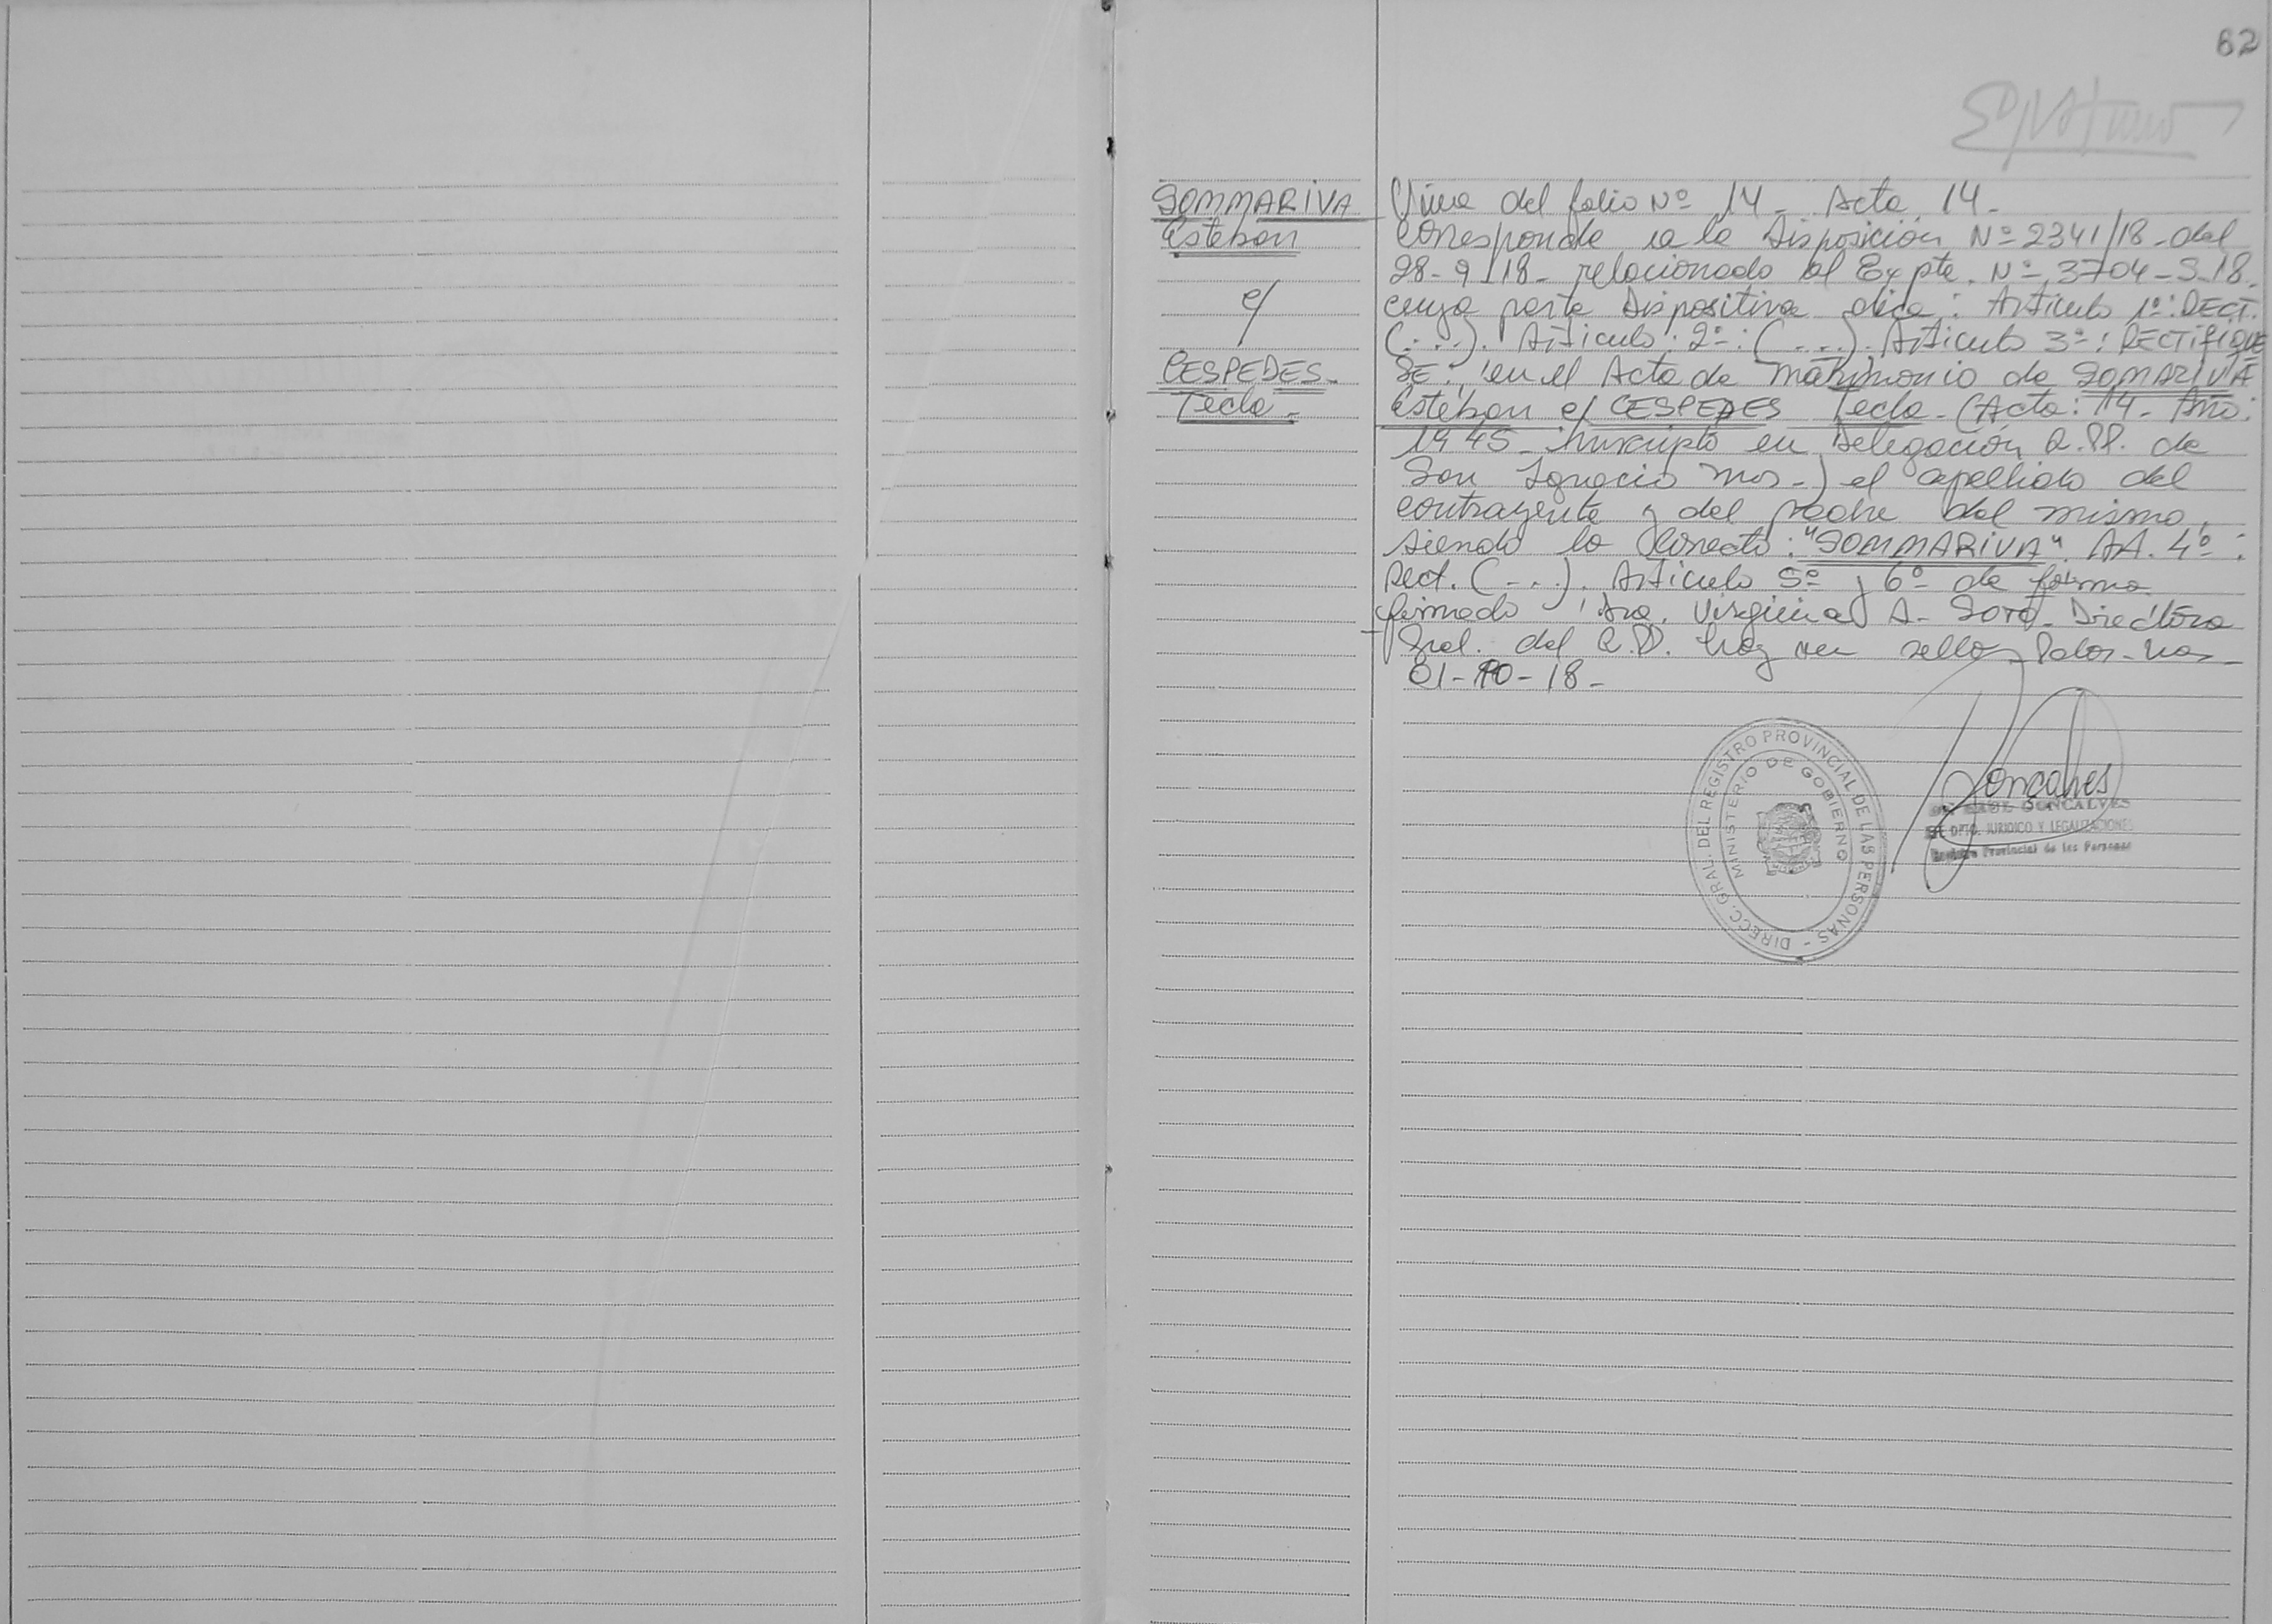 62
SOMMARIVA
Esteban
c/
CESPEDES-
Tecla-
Viene del folio Nº 14- Acta 14-
Corresponde a la Disposición Nº 2341/18-del
28-9-18- relacionado al Expte. Nº 3704-S-18.
cuya parte Dispositiva dice: Artículo 1º: RECT.
(....). Artículo: 2º: (....). Artículo 3º: RECTIFIQUE
SE: en el Acta de Matrimonio de SOMARIVA
Esteban c/ CESPEDES Tecla-(Acta: 14- Año:
1945- inscripto en Delegación R.PP. de
San Ignacio Mnes-) el apellido del
contrayente y del padre del mismo,
siendo lo Correcto: "SOMMARIVA". Art. 4º:
Rect. (...). Artículo 5º y 6º de forma
firmado Dra. Virginia A- Soto- Directora
Gral. del R.PP. hay un sello-
01-10-18-
DIREC. GRAL. DEL REGISTRO PROVINCIAL DE LAS PERSONAS -
MINISTERIO DE GOBIERNO
Goncalves
GONCALVES
DPTO. JURIDICO Y LEGALIZACIONES
Registro Provincial de las Personas